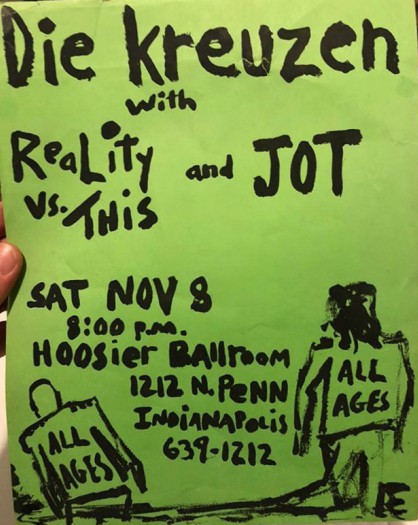 Die Kreuzen
with
Reality vs. This and JOT
SAT NOV 8
8:00 p.m.
Hoosier Ballroom
1212 N. Penn
Indianapolis
639-1212
ALL AGES
ALL AGES